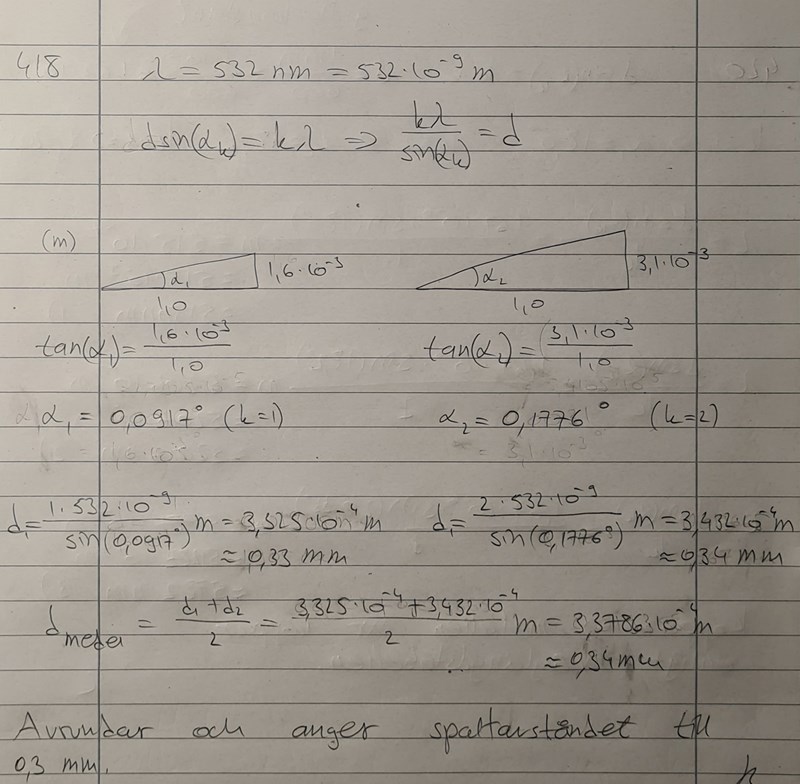 418 λ = 532 nm = 532·10⁻⁹ m
d sin(α_k) = kλ ⇒ kλ/sin(α_k) = d
(m)
α₁ 1,6·10⁻³ α₂ 3,1·10⁻³
1,0 1,0
tan(α₁) = 1,6·10⁻³/1,0 tan(α₂) = 3,1·10⁻³/1,0
α₁ = 0,0917° (k=1) α₂ = 0,1776° (k=2)
d₁ = 1·532·10⁻⁹/sin(0,0917°) m = 3,325·10⁻⁴ m d₁ = 2·532·10⁻⁹/sin(0,1776°) m = 3,432·10⁻⁴ m
≈ 0,33 mm ≈ 0,34 mm
d_medel = d₁+d₂/2 = 3,325·10⁻⁴+3,432·10⁻⁴/2 m = 3,3786·10⁻⁴ m
≈ 0,34 mm
Avrundar och anger spaltavståndet till
0,3 mm.